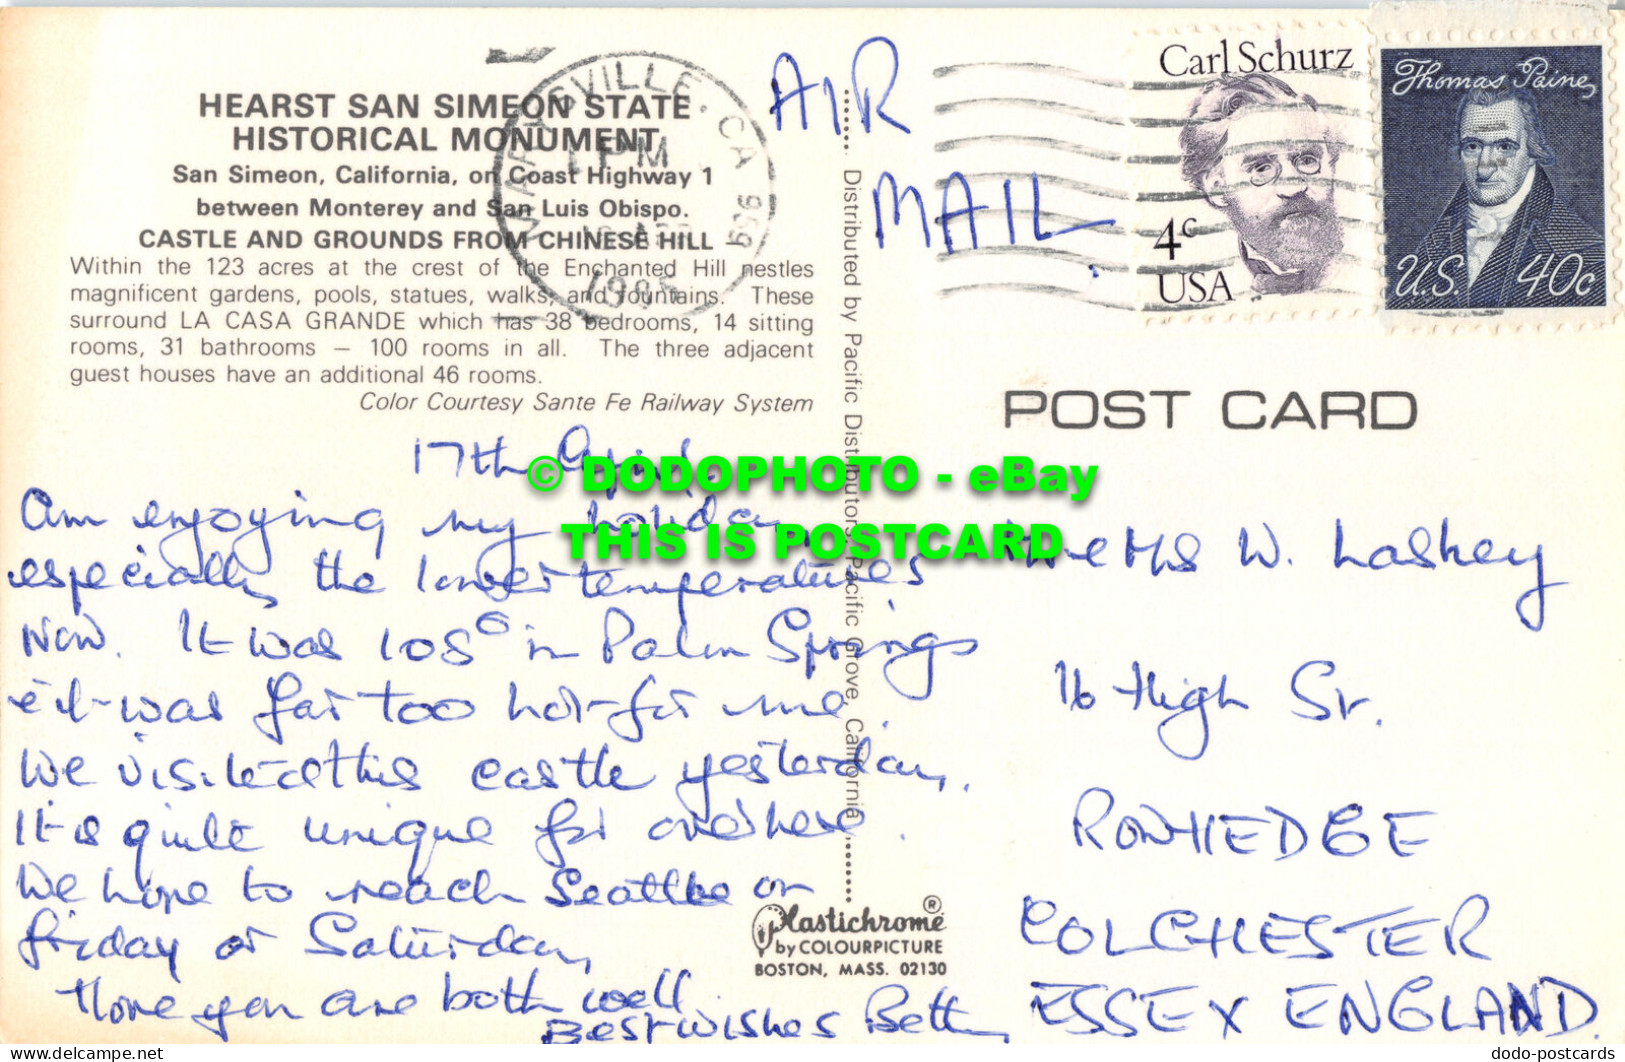 HEARST SAN SIMEON STATE
HISTORICAL MONUMENT
San Simeon, California, on Coast Highway 1
between Monterey and San Luis Obispo.
CASTLE AND GROUNDS FROM CHINESE HILL
Within the 123 acres at the crest of the Enchanted Hill nestles
magnificent gardens, pools, statues, walks, and fountains. These
surround LA CASA GRANDE which has 38 bedrooms, 14 sitting
rooms, 31 bathrooms — 100 rooms in all. The three adjacent
guest houses have an additional 46 rooms.
Color Courtesy Sante Fe Railway System
MARYSVILLE, CA 959
1 PM
AIR
MAIL
Carl Schurz
4c
USA
Thomas Paine
U.S. 40c
POST CARD
Distributed by Pacific Distributors, Pacific Grove, California
17th April
Am enjoying my holiday,
especially the lower temperatures
now. It was 105° in Palm Springs
& it was far too hot for me.
We visited this castle yesterday.
It is quite unique for over here.
We hope to reach Seattle on
Friday or Saturday
Hope you are both well
Best wishes Betty
W. Laskey
16 High St.
ROWHEDGE
COLCHESTER
ESSEX ENGLAND.
Plastichrome®
by COLOURPICTURE
BOSTON, MASS. 02130
© DODOPHOTO - eBay
THIS IS POSTCARD
www.delcampe.net
dodo-postcards